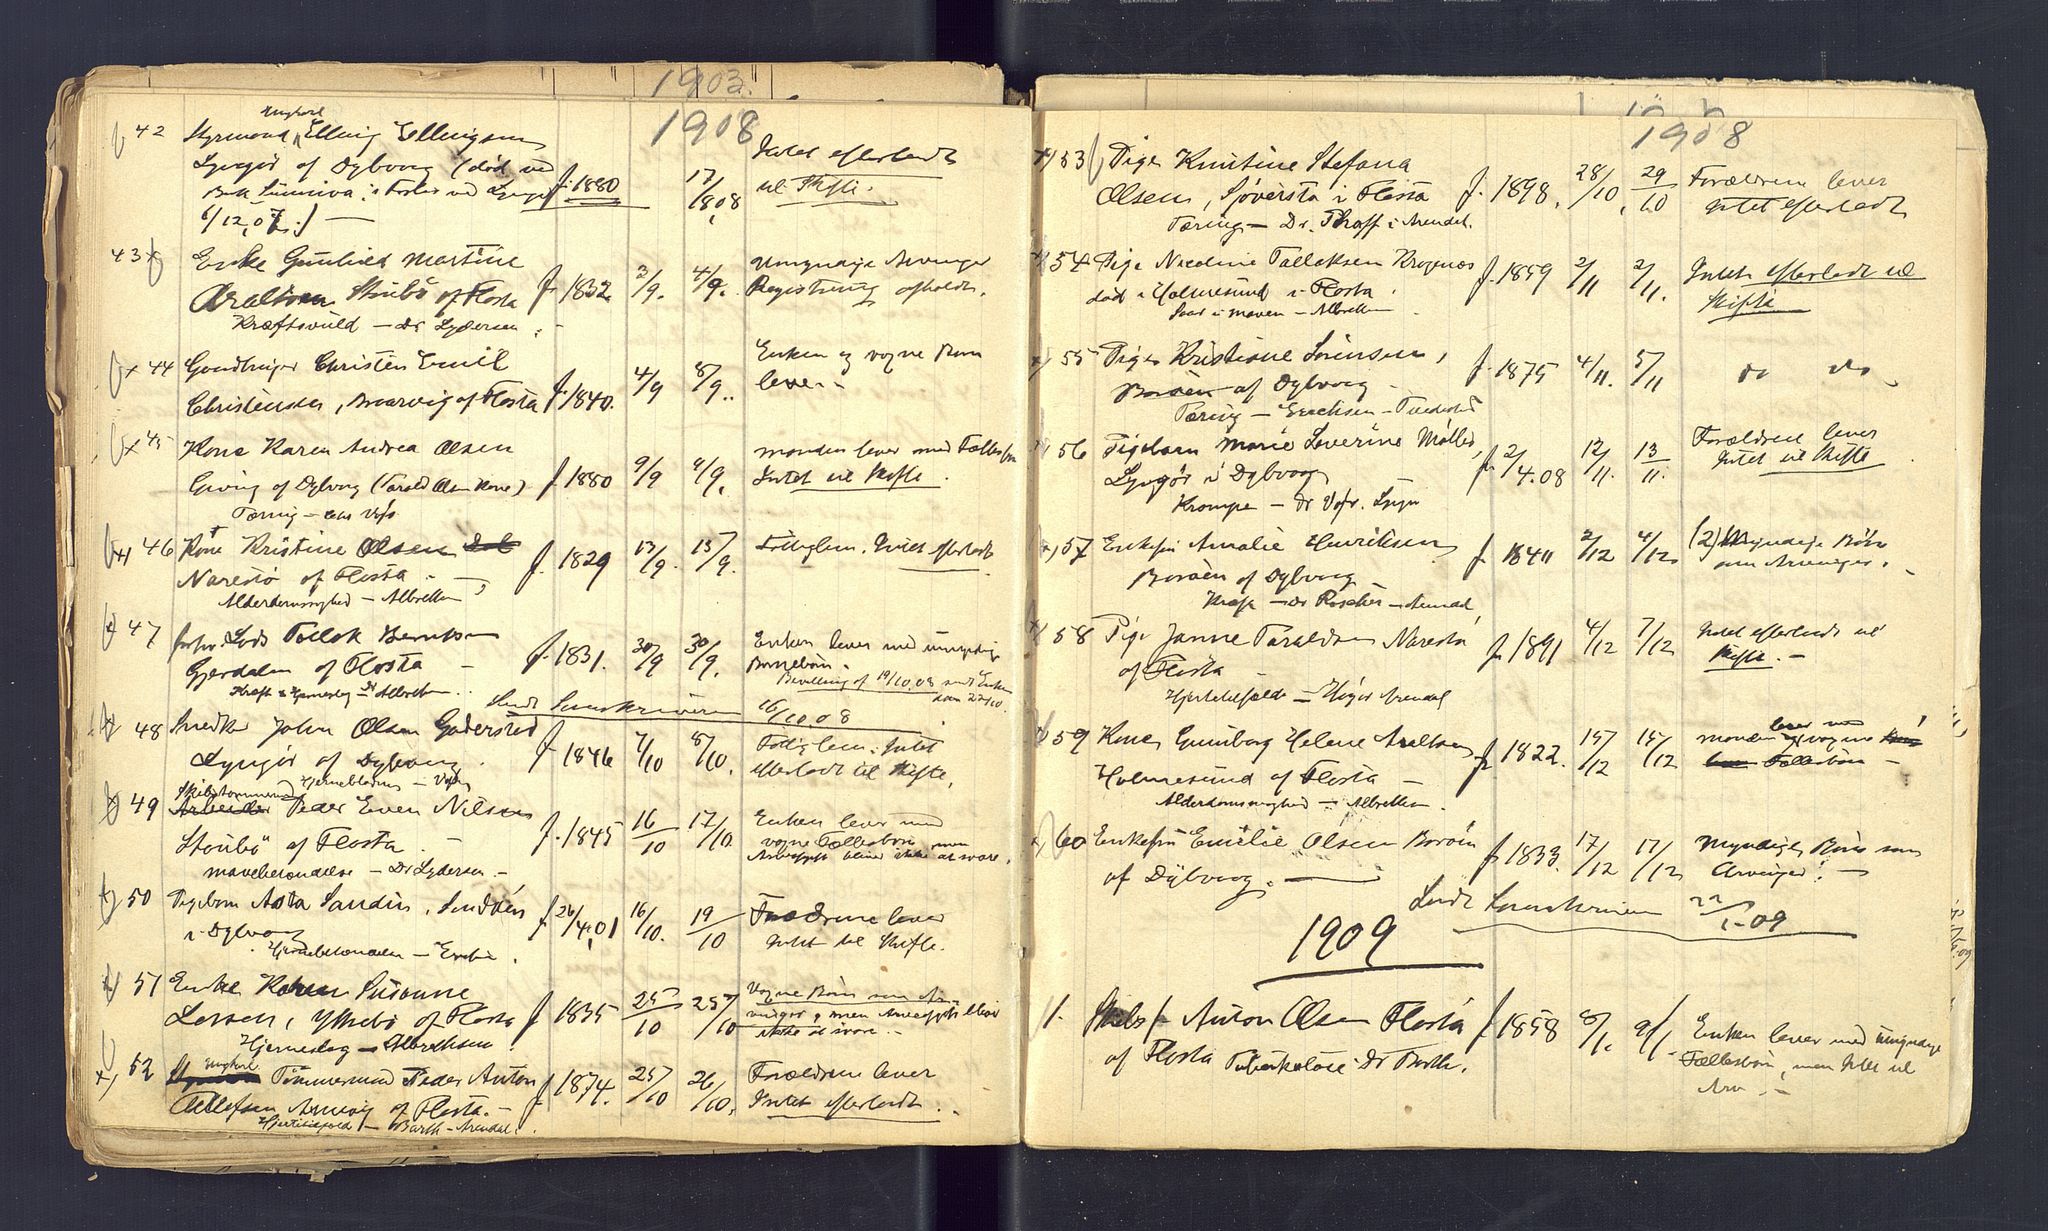 1903
1908
42 Ungkarl
Styrmand Elling Ellingsen
Lyngør af Dybvaag (død ved
f. 1880 17/8 08 Intet efterladt
til Skifte.
6/12.07.)
43 Enke Gunhild Martine
Araldsen Stølsbø af Flosta f. 1832 3/9. 4/9. Umyndige Arvinger
Registrering afholdt.
Kræftsvuld – Dr Lydersen
44 Gaardbruger Christen Emil
Christensen, Narvig af Flosta f. 1840. 4/9 8/9. Enken og voxne Børn
lever.
45 Kone Karen Andrea Olsen
Giving af Dybvaag (Tarald Olsens Kone) f 1880 9/9 9/9. Manden lever med Fællesbørn
Intet til Skifte.
Tæring –
46 Kone Kristine Olsen
Narestø af Flosta f. 1829 13/9. 15/9. Fattiglem. Intet efterladt
Alderdomssvaghed – Albrethsen
47 forhv. Lods Tallak Berntsen
Gjerdalen af Flosta f. 1831. 30/9 30/9. Enken lever med umyndige
Børnebørn.
Bevilling af 19/10.08 sendt Enken
den 22/10.
Kræft & Hjerneslag Dr Albrethsen
Sendt Sorenskriveren 16/10.08
48 Snedker John Olsen Goderstad
Lyngør af Dybvaag f 1846 7/10 8/10. Fattiglem. Intet
efterladt til Skifte,
49 Skibstømmermand
Arbeider Peder Even Nilsen
Stølsbø af Flosta f. 1845 16/10 17/10 Enken lever med
voxne Fællesbørn men
Arveafgift bliver ikke at svare.
Mavebetændelse – Dr Lydersen –
50 Pigebarn Asta Sandin, Sunddøen
i Dybvaag f 26/4.01 16/10. 19/10 Forældrene lever
Intet til Skifte.
Hjernebetændelse –
51 Enke Karen Susanne
Larsen, Ytrebø af Flosta f 1835 25/10 25/10 Voxne Børn som Ar-
vinger & men Arveafgift bliver
ikke at svare. –
Hjerneslag – Albrethsen
52 Ungkarl
Tømmermand Peder Anton
Ollefsen Arnevig af Flosta. – f 1874. 25/10 26/10. Forældrene lever
Intet efterladt.
Hjertefeil – Barth – Arendal.
1908
53 Pige Kristine Stefana
Olsen, Sjøversta i Flosta f. 1898. 28/10 29/10 Forældrene lever
Intet efterladt
Tæring – Dr. Thraff i Arendal.
54 Pige Nicoline Tallaksen Kragenæs
død i Holmesund i Flosta. f. 1859 2/11 2/11. Intet efterladt til
Skifte
Saar i Maven – Albrethsen
55 Pige Kristiane Sørensen,
Borøen af Dybvaag f. 1875 4/11. 5/11 do do
Tæring – Erichsen – Tvedestrand
56 Pigebarn Marie Severine Møller,
Lyngør i Dybvaag f. 2/4.08 12/11. 13/11. Forældrene lever
Intet til Skifte
Krampe –
57 Enkefru Amalie Henriksen
Borøen af Dybvaag f 1840 2/12 4/12 (2) Myndige Børn
som Arvinger.
Kræft – Dr Roscher – Arendal
58 Pige Janne Taraldsen Narestø
af Flosta f 1891 4/12 7/12 Intet efterladt til
Skifte. –
Hjertelidelse – Høyer Arendal
59 Kone Gunborg Helene Araldsen
Holmesund af Flosta f 1822. 15/12 15/12 Manden lever med voxne
Fællesbørn –
Alderdomssvaghed – Albrethsen.
60 Enkefru Emilie Olsen Borøen
af Dybvaag. f 1833. 17/12 17/12 Myndige Børn som
Arvinger. –
Sendt Sorenskriveren 22/1-09
1909
1. Skibsf. Anton Olsen Flosta f 1858 8/1. 9/1. Enken lever med umyndige
af Flosta Tuberkulose Dr Barth. Fællesbørn, men Intet til
Arv –